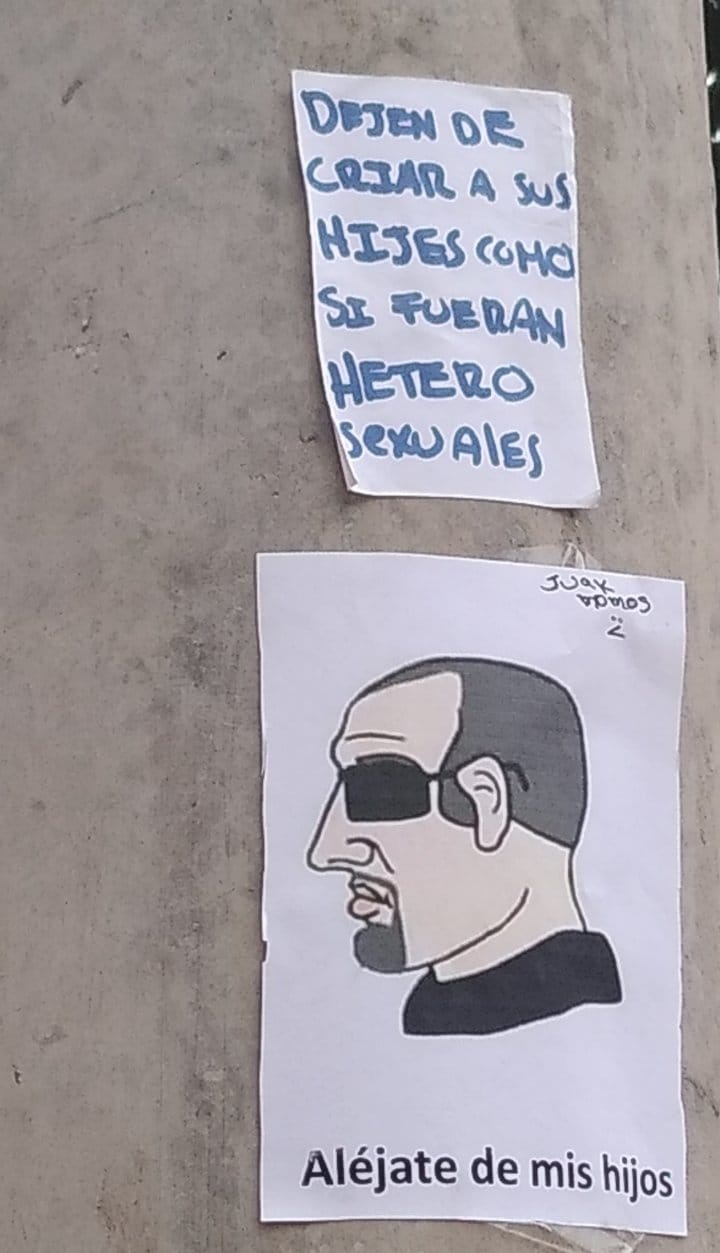 DEJEN DE
CRIAR A SUS
HIJES COMO
SI FUERAN
HETERO
SEXUALES
Aléjate de mis hijos